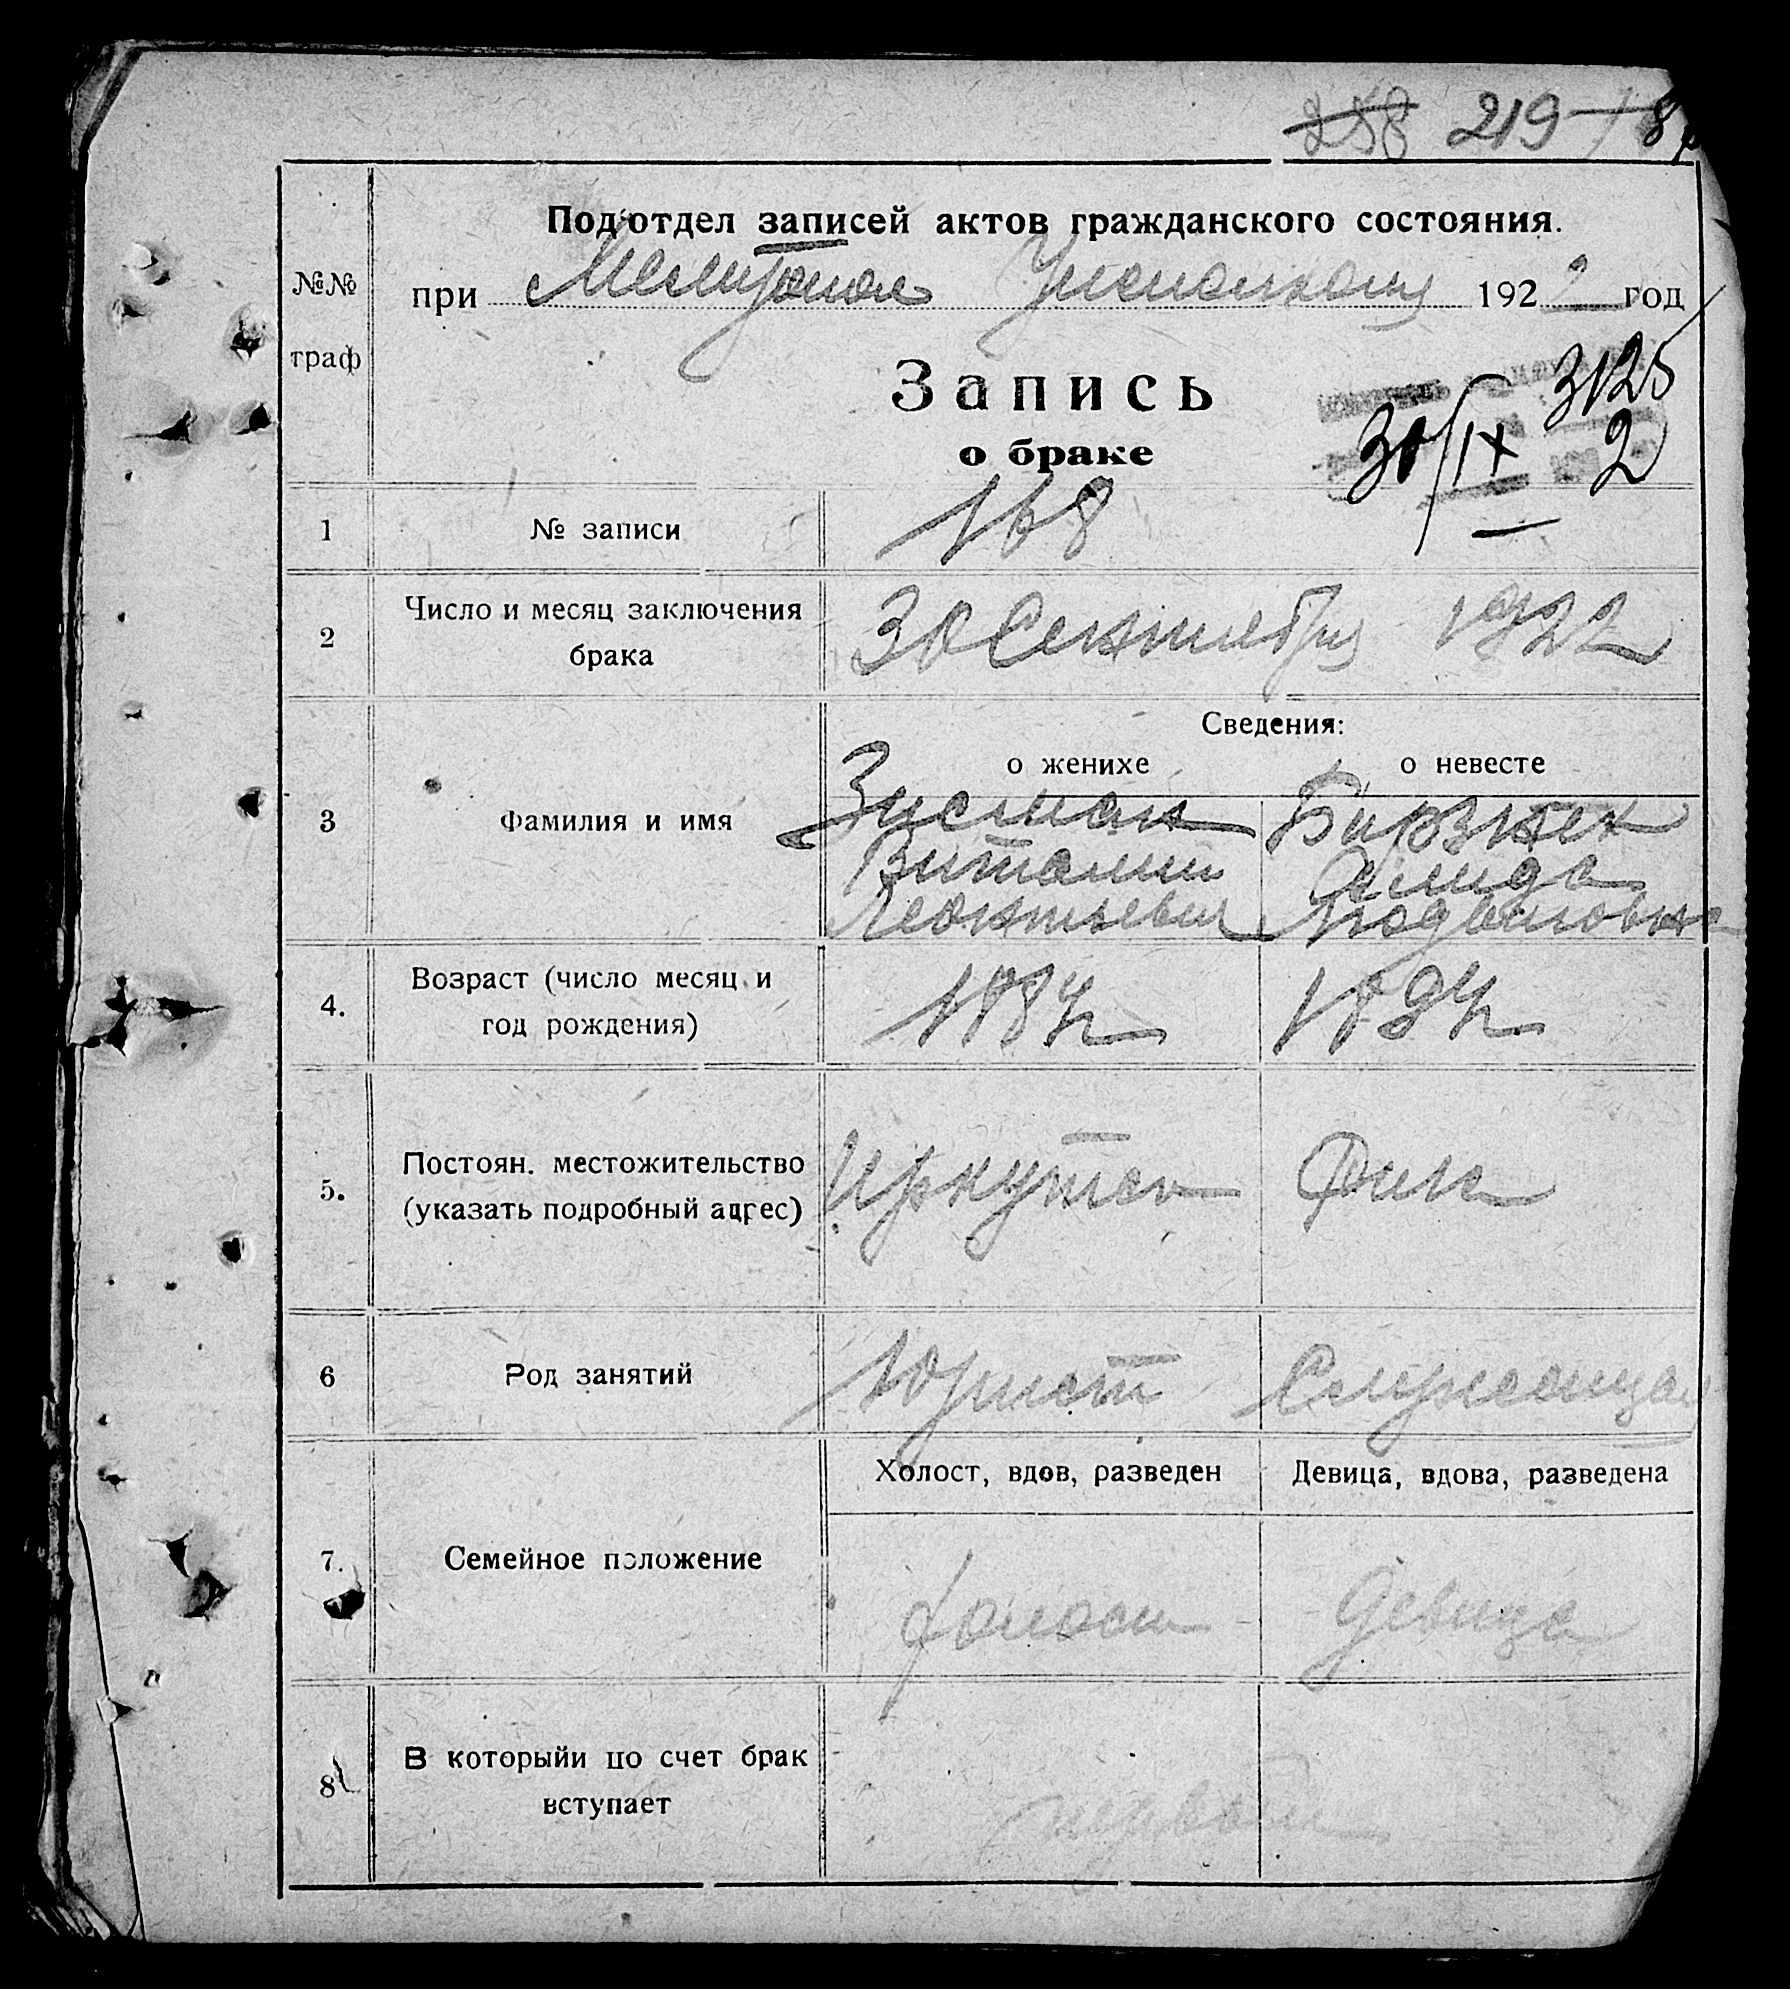 258 219
Подотдел записей актов гражданского состояния.
№№ граф
при Мелитополь Уисполкоме 1922 год
Запись
о браке
3125
30/IX 2
1 № записи 168
2 Число и месяц заключения брака 30 Сентября 1922
Сведения:
о женихе о невесте
3 Фамилия и имя
Зисман
Виталий
Леонтьевич
Бирзнек
Алида
4. Возраст (число месяц и год рождения) 1884 1894
5. Постоян. местожительство (указать подробный адрес) Иркутск
6 Род занятий Юрист Служащая
Холост, вдов, разведен Девица, вдова, разведена
7. Семейное положение холост девица
8 В которыйи по счет брак вступает первый